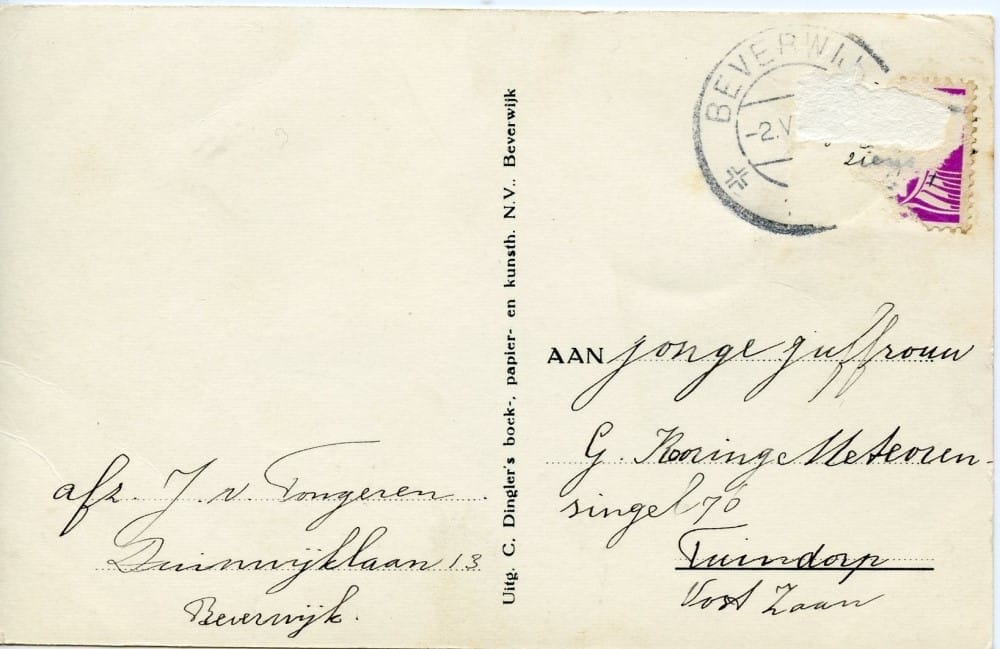 BEVERWIJ
-2.V
ziens
AAN jonge juffrouw
G. Koning Meteoren-
singel 76
Tuindorp
Oost Zaan
Uitg. C. Dingler's boek-, papier- en kunsth. N.V., Beverwijk
afz. J. v. Tongeren
Duinwijklaan 13
Beverwijk.